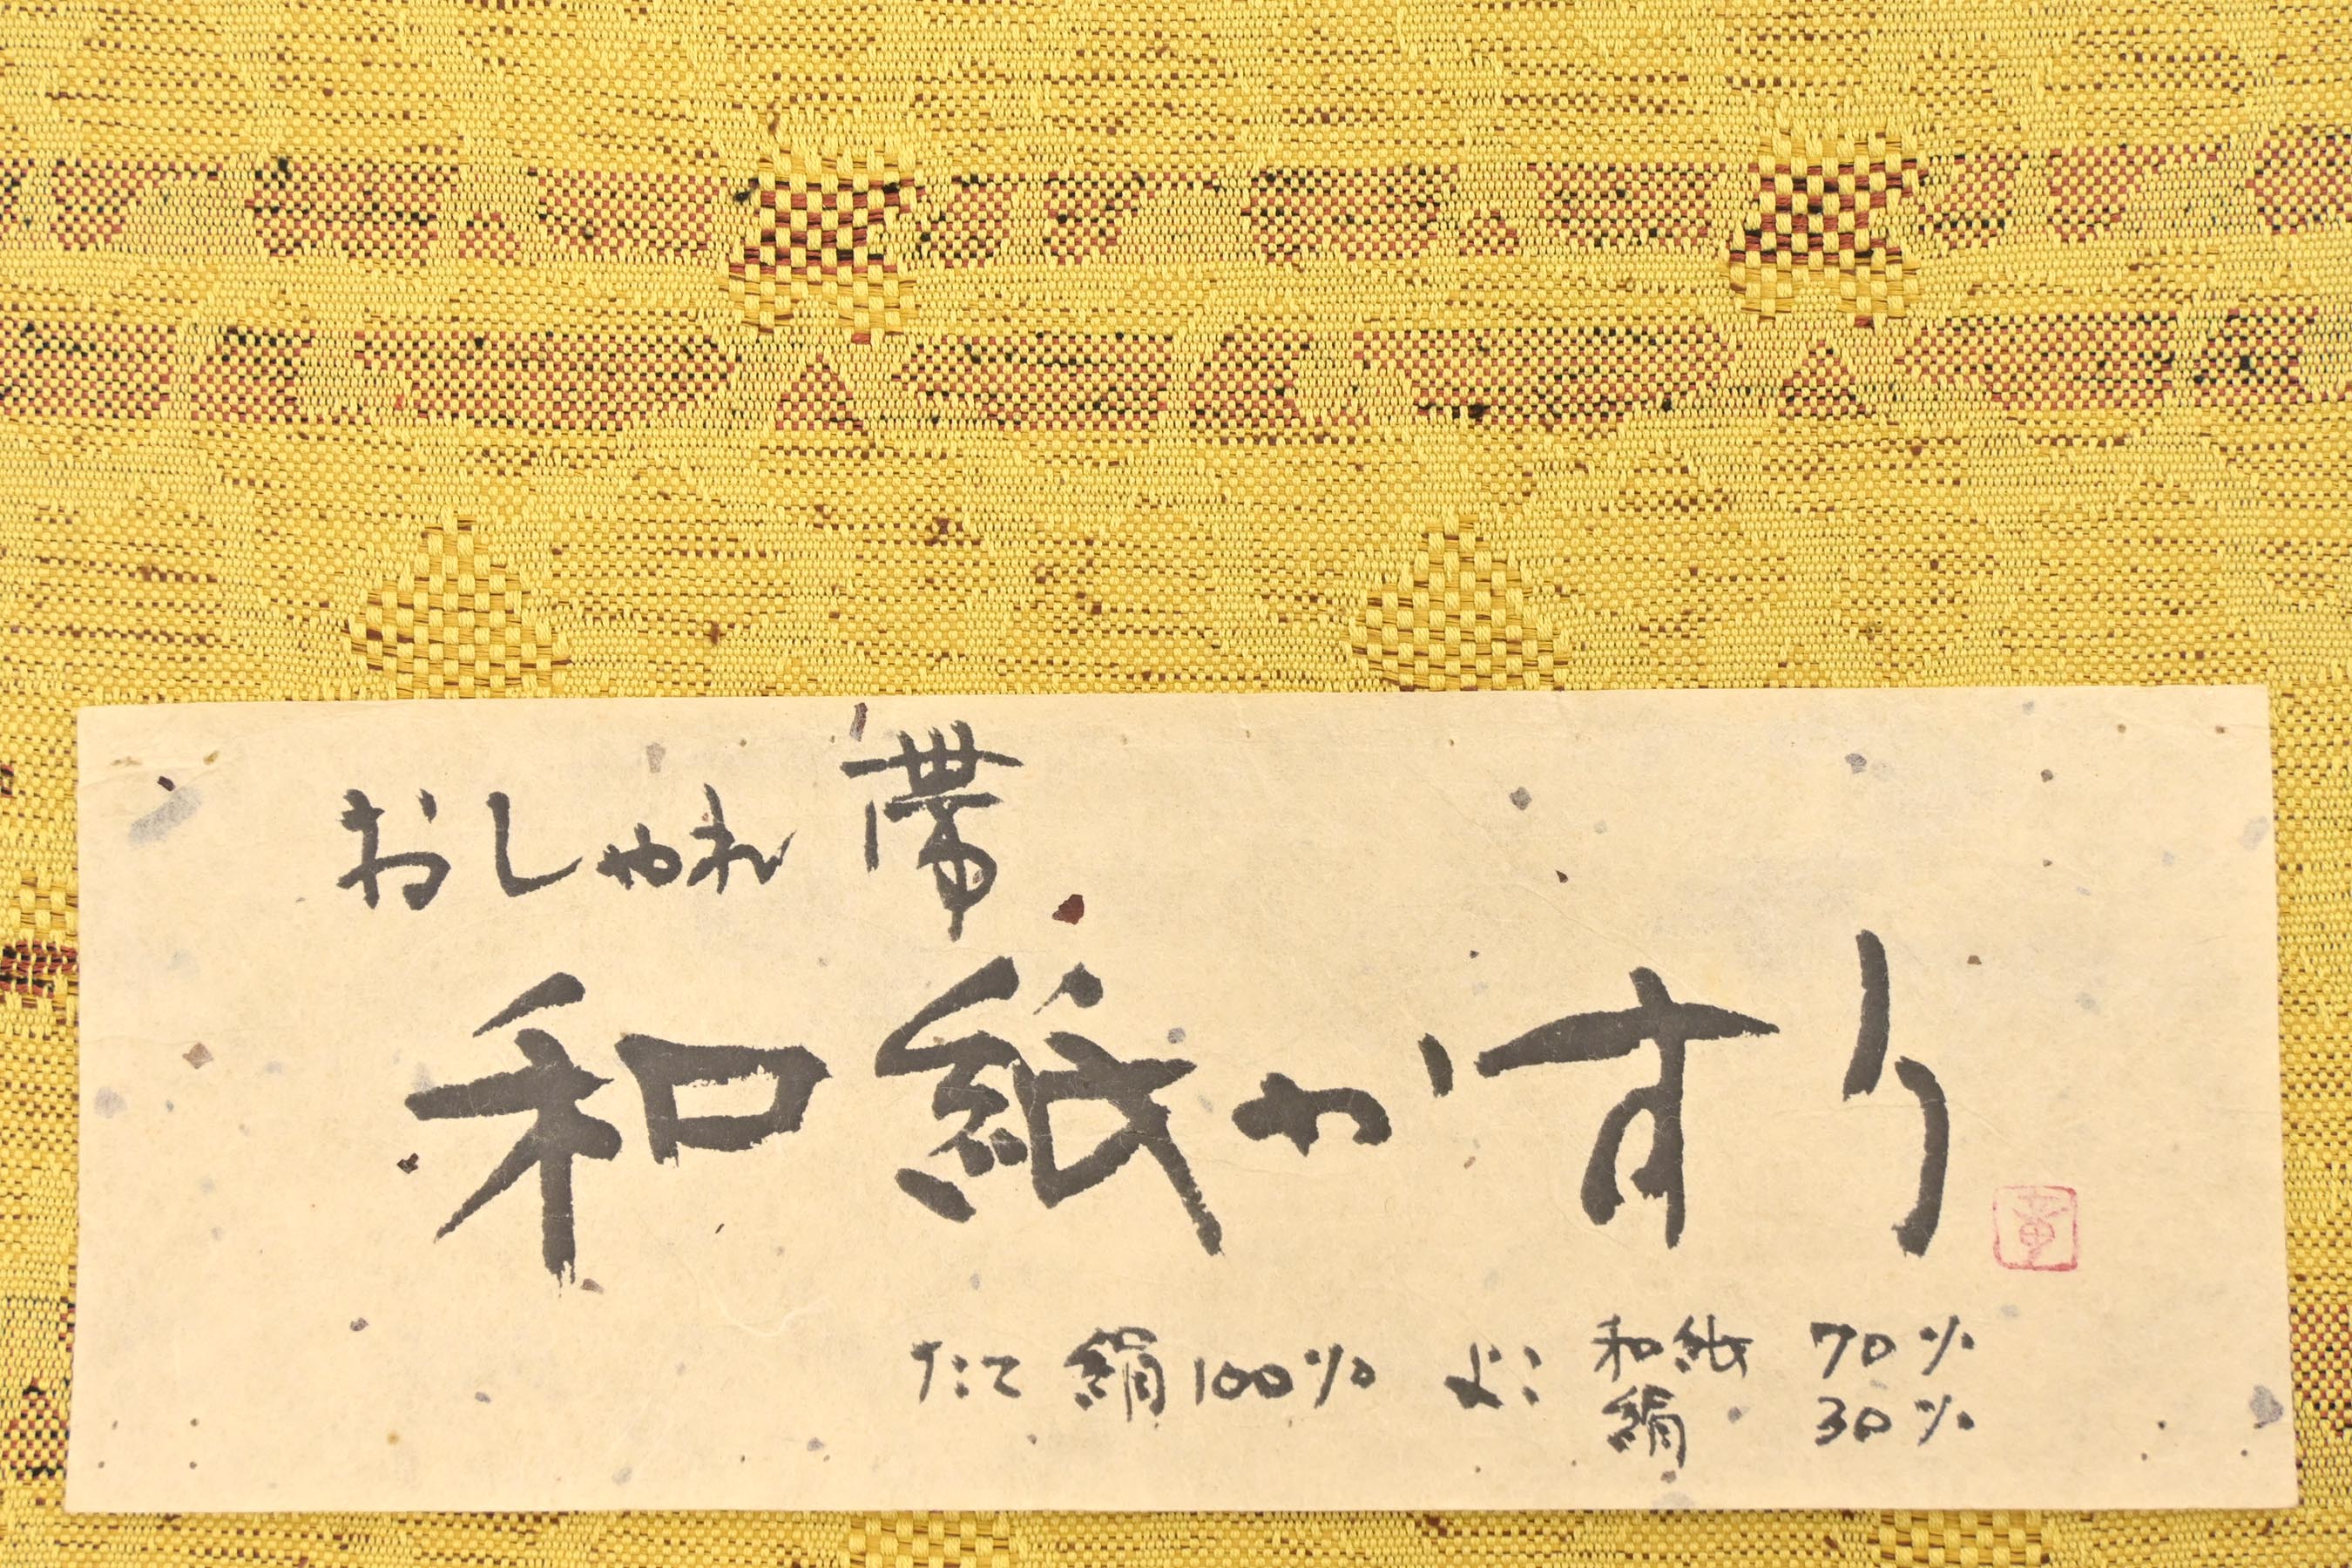 おしゃれ帯
和紙かすり
たて 絹100% よこ 和紙 70%
絹 30%